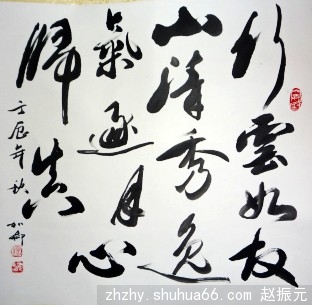 行雲如故
山秀逸
氣逐月心
歸真
壬辰年秋
zhzhy.shuhua66.com 赵振元